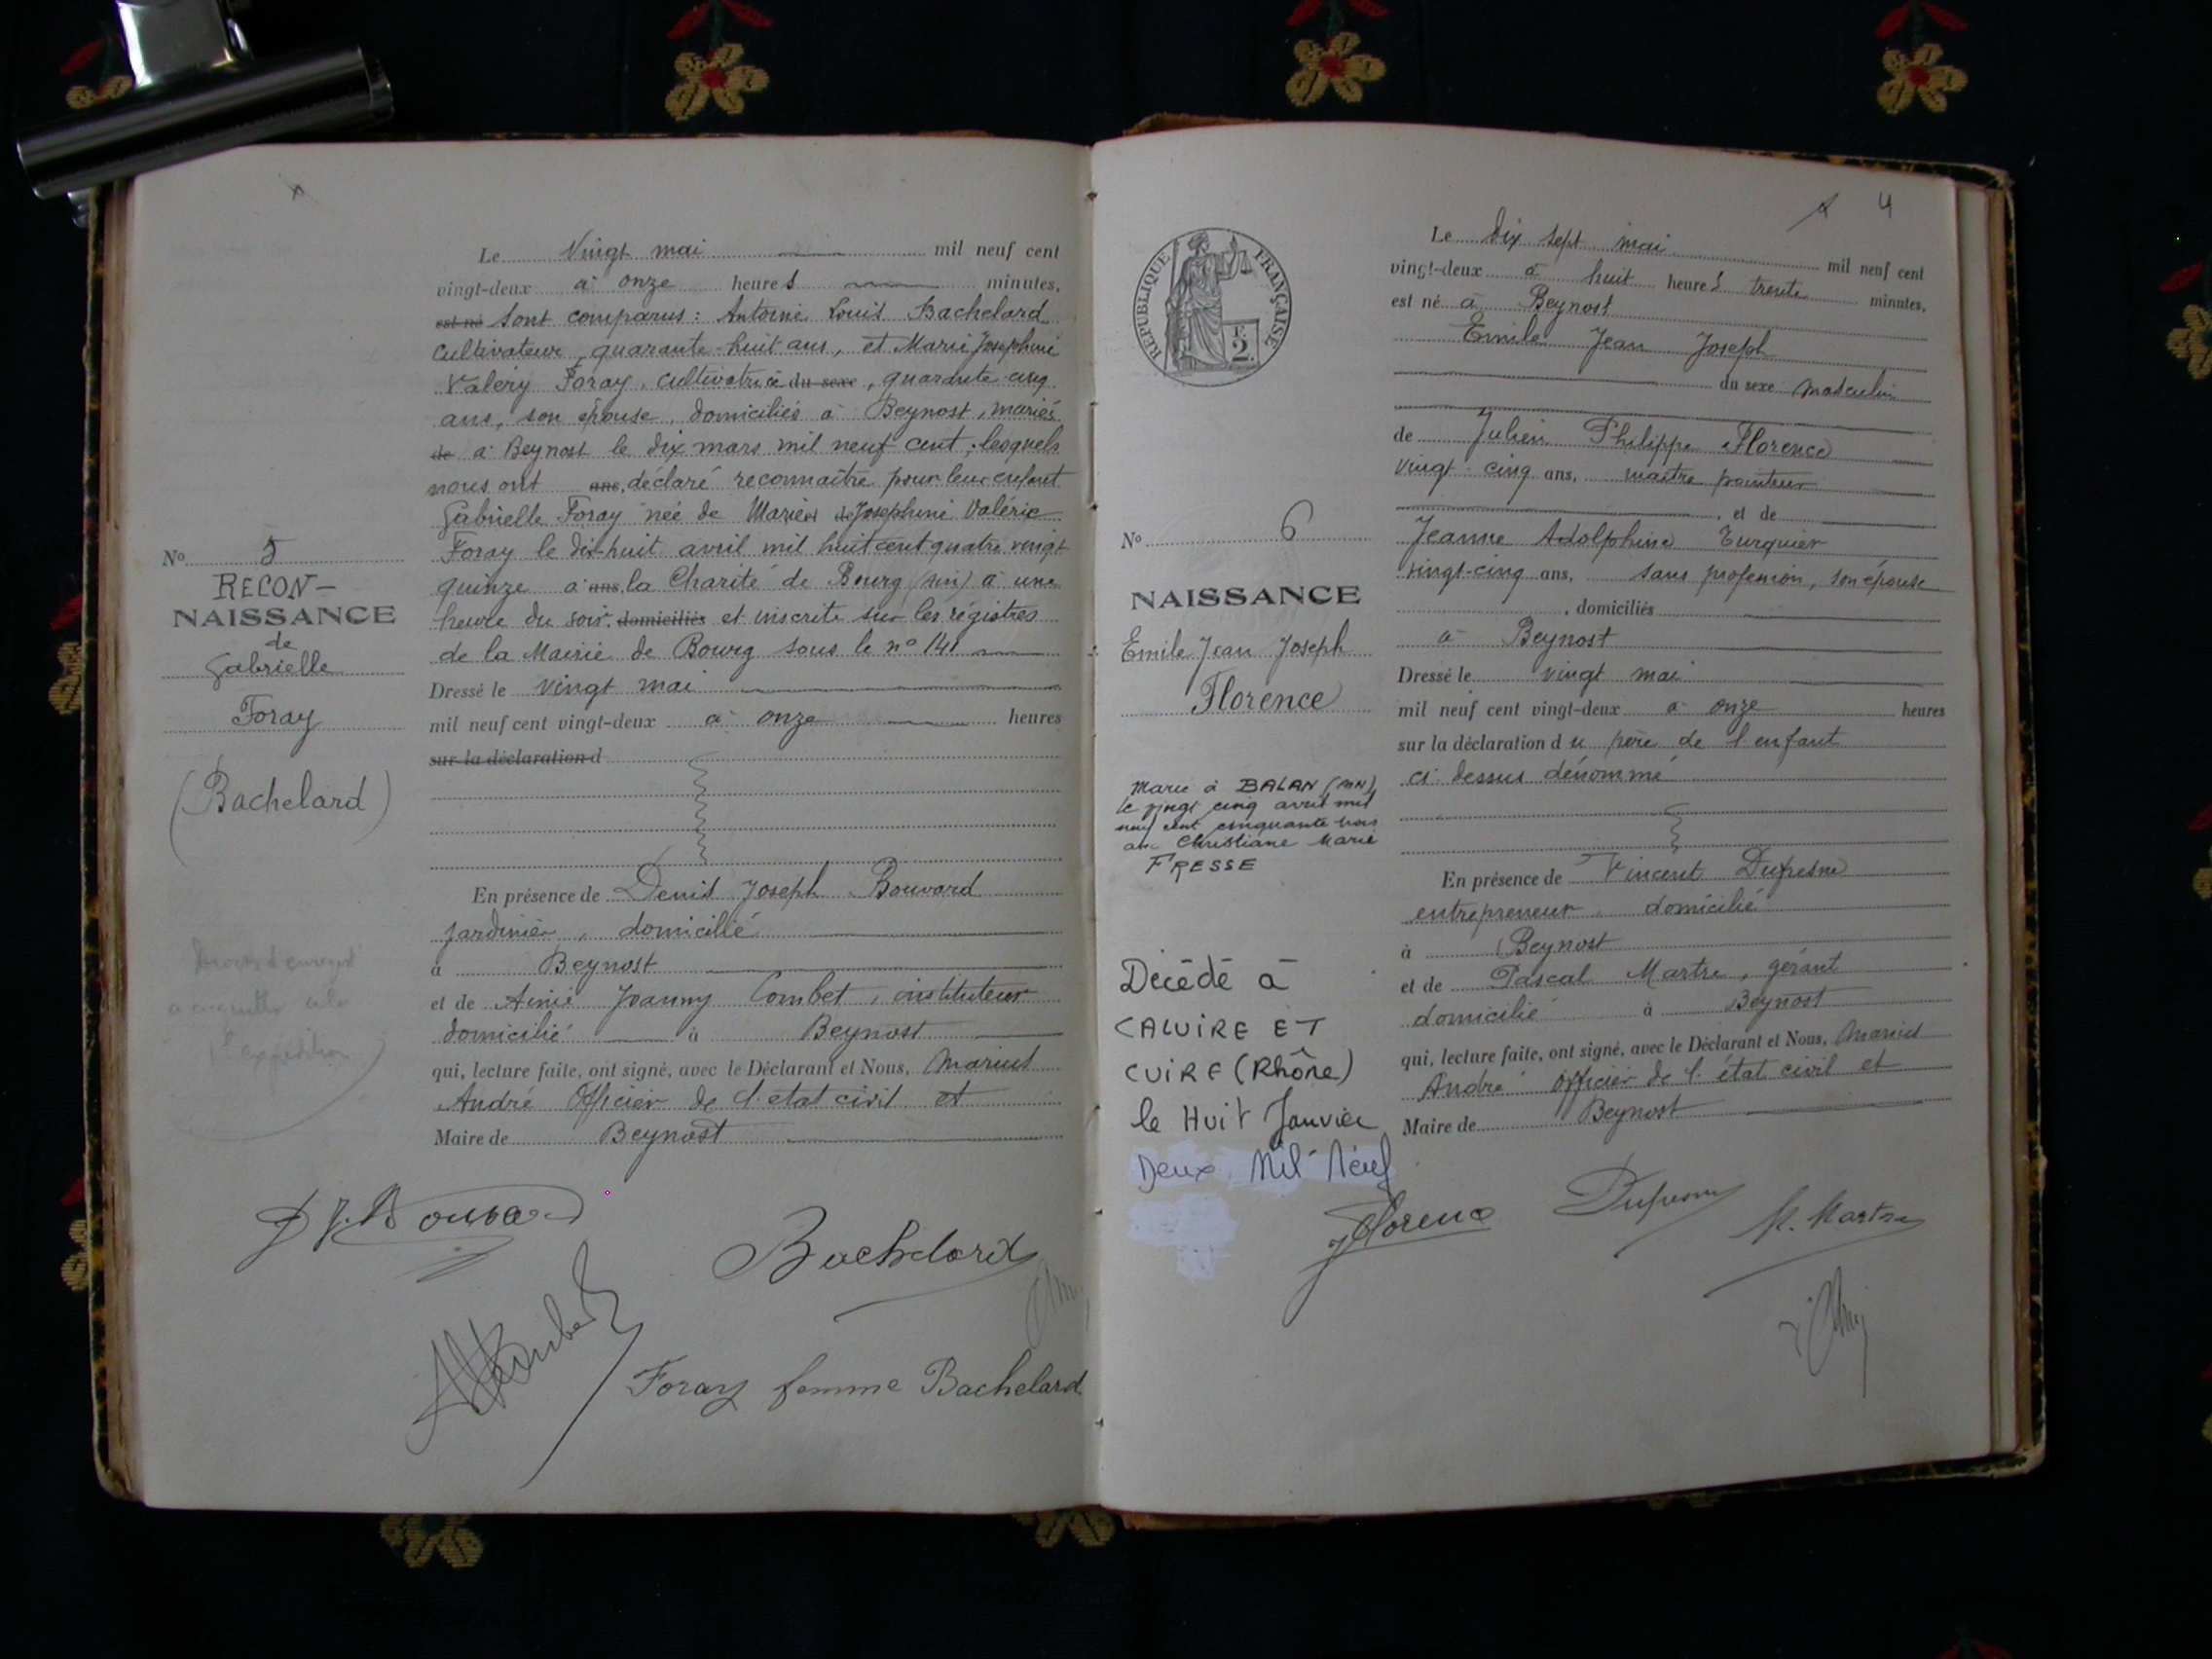 Le Vingt mai mil neuf cent
vingt-deux à onze heures minutes,
est né sont comparus : Antoine Louis Bachelard
cultivateur, quarante-huit ans, et Marie Josephine
Valéry Foray, cultivatrice du sexe, quarante-cinq
ans, son épouse, domiciliés à Beynost, mariés
de à Beynost le dix mars mil neuf cent ; lesquels
nous ont ans, déclaré reconnaitre pour leur enfant
Gabrielle Foray née de Marie Josephine Valérie
Foray le dix-huit avril mil huit cent quatre vingt
quinze à ans, la Charité de Bourg (Ain) à une
heure du soir. domiciliés et inscrite sur les régistres
de la Mairie de Bourg sous le n° 141
Dressé le vingt mai
mil neuf cent vingt-deux à onze heures
sur la déclaration d
En présence de Denis Joseph Bouvard
jardinier, domicilié
à Beynost
et de Aimé Joanny Combet, instituteur
domicilié à Beynost
qui, lecture faite, ont signé, avec le Déclarant et Nous, Marius
André Officier de l'état civil et
Maire de Beynost
N° 5
RECON-
NAISSANCE
de
Gabrielle
Foray
(Bachelard)
1re expédition
D J. Bouvard
Bachelard
Foray femme Bachelard
4
RÉPUBLIQUE FRANÇAISE
2
N° 6
NAISSANCE
Emile Jean Joseph
Florence
Marié à BALAN (AIN)
le vingt cinq avril mil
neuf cent cinquante trois
avec Christiane Marie
FRESSE
Décédé à
CALUIRE ET
CUIRE (Rhône)
le Huit Janvier
Deux Mil Neuf
Le Dix sept mai mil neuf cent
vingt-deux à huit heures trente minutes,
est né à Beynost
Emile Jean Joseph
du sexe masculin
de Julien Philippe Florence
vingt-cinq ans, maitre pointeur
, et de
Jeanne Adolphine Turquier
vingt-cinq ans, sans profession, son épouse
, domiciliés
à Beynost
Dressé le vingt mai
mil neuf cent vingt-deux à onze heures
sur la déclaration du père de l'enfant
ci dessus dénommé
En présence de Vincent Dufresne
entrepreneur, domicilié
à Beynost
et de Pascal Martre, gérant
domicilié à Beynost
qui, lecture faite, ont signé, avec le Déclarant et Nous, Marius
André officier de l'état civil et
Maire de Beynost